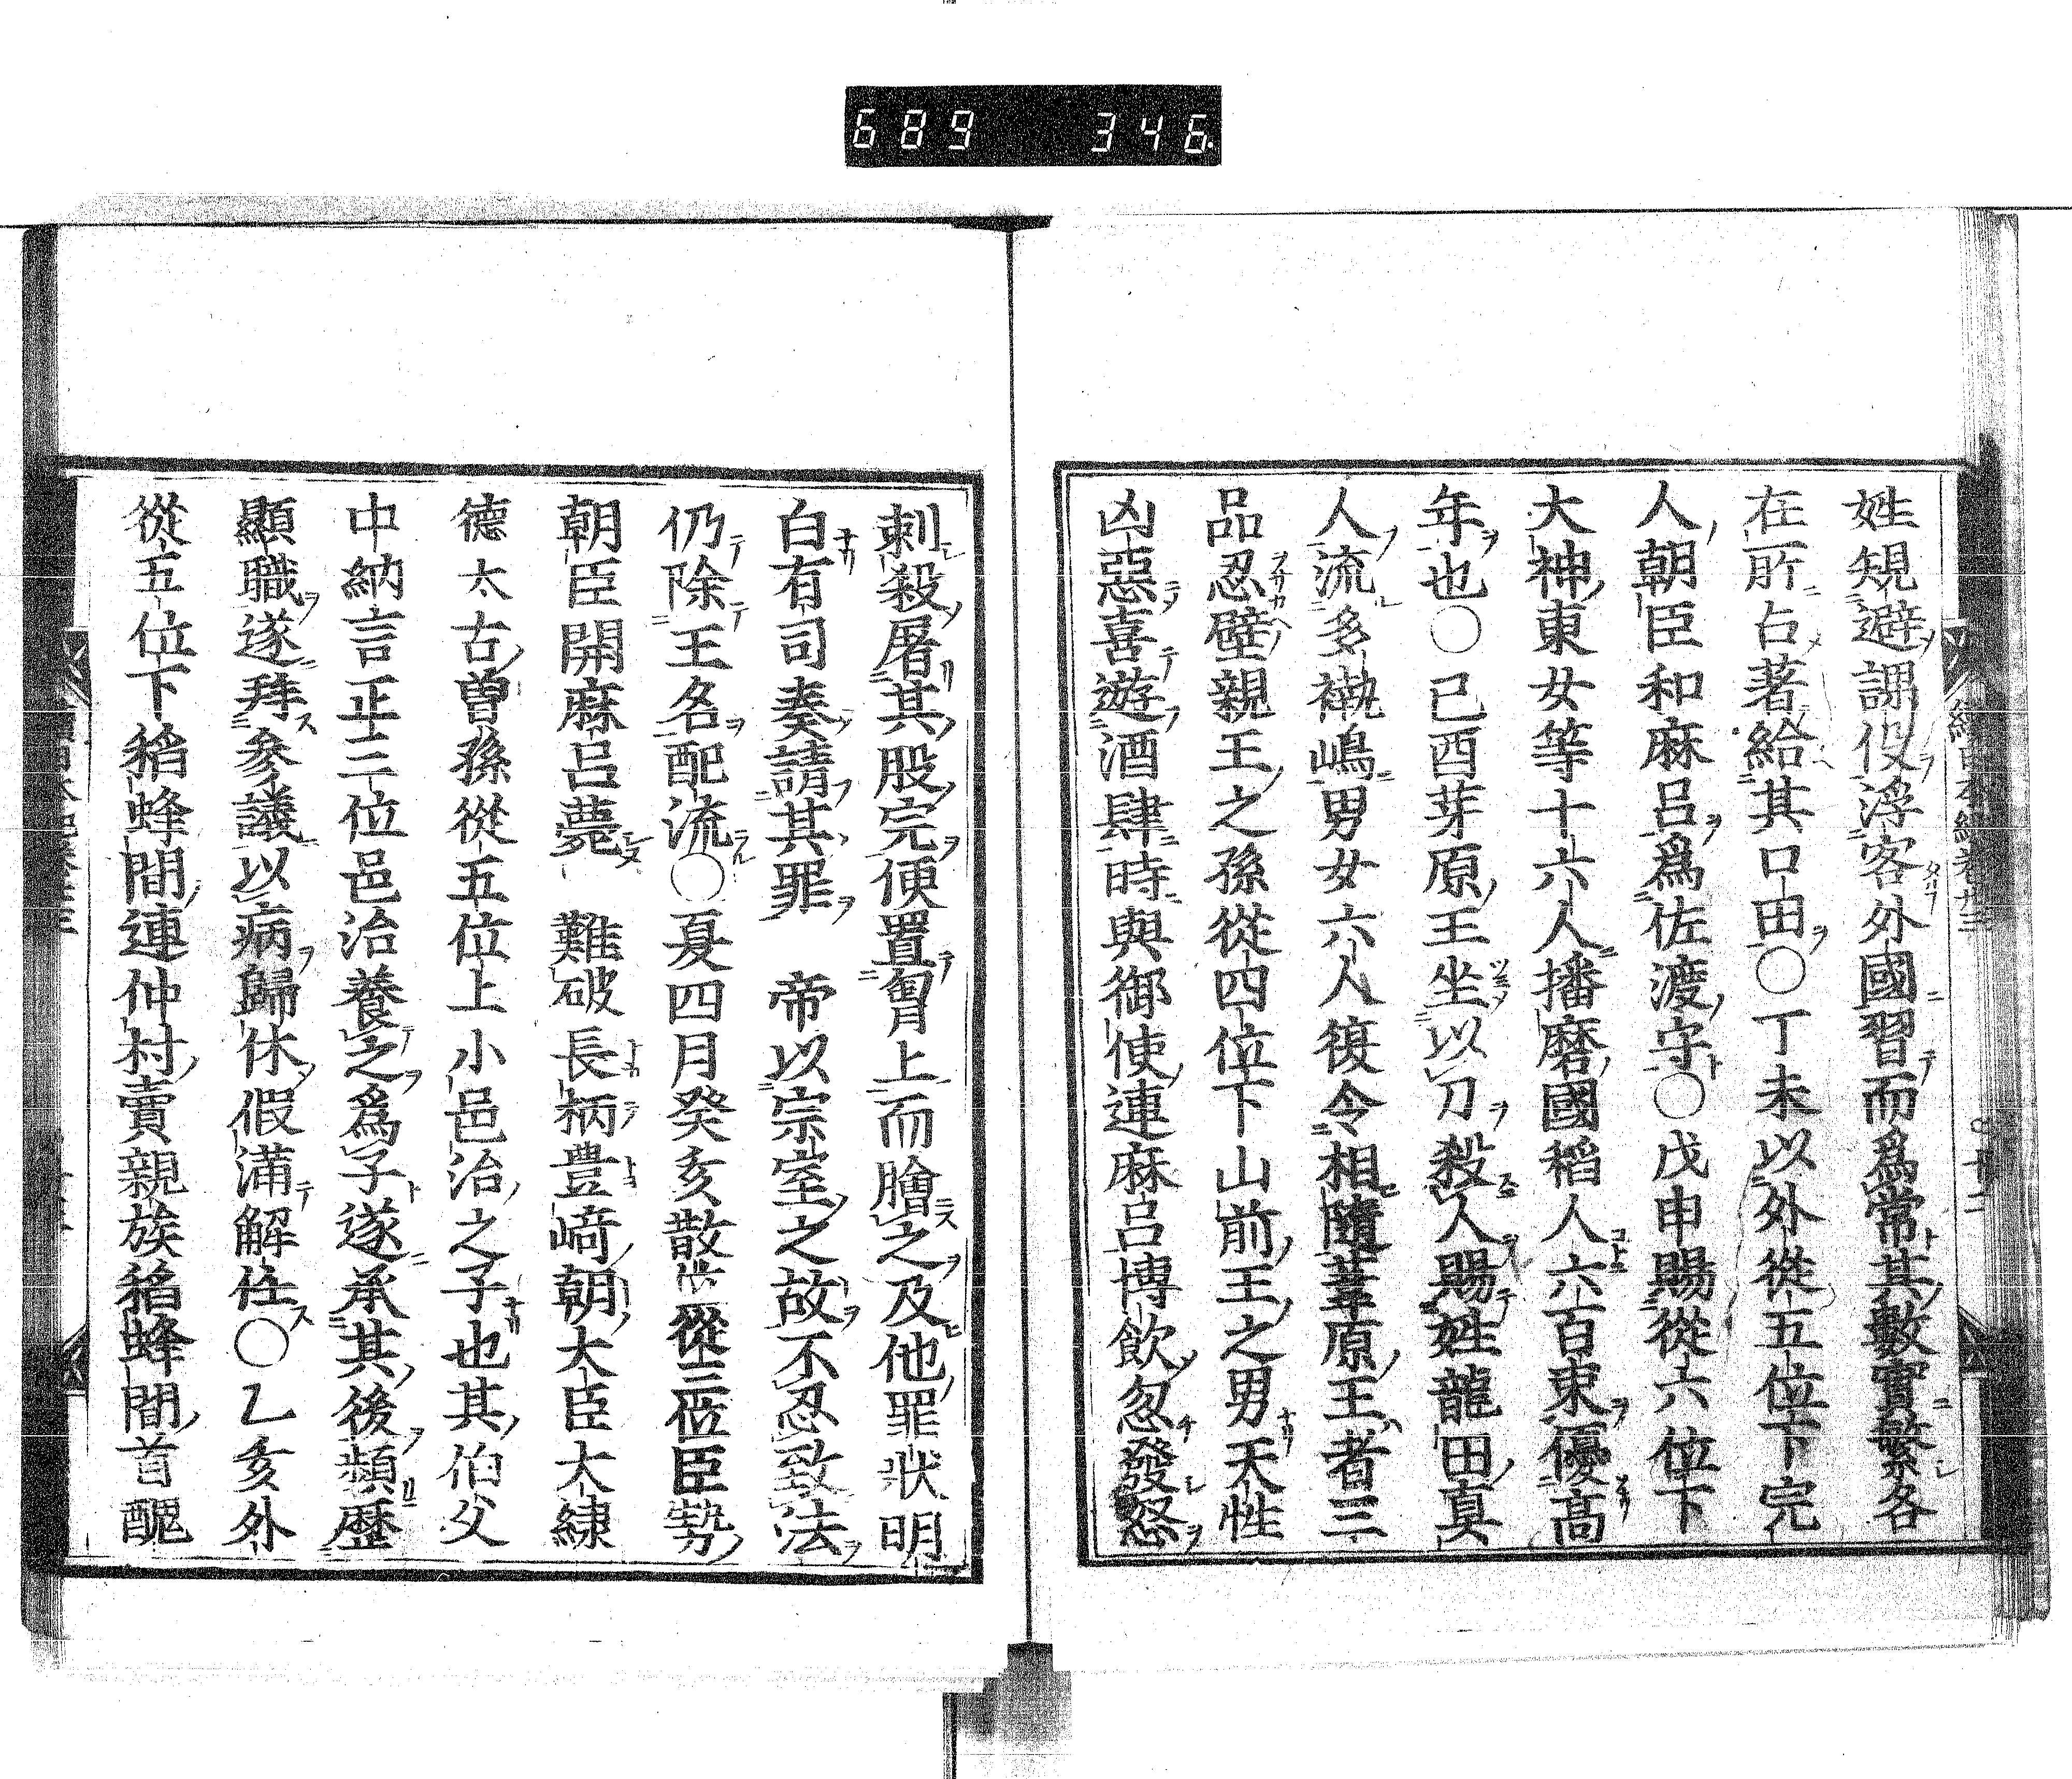 689 346
姓規避課役浮客外國習而爲常其數實繁各
在所占著給其口田〇丁未以外從五位下完
人朝臣和麻呂爲佐渡守〇戊申賜從六位下
大神東女等十六人播磨國稻人六百束優高
年也〇己酉芽原王坐以刀殺人賜姓龍田真
人流多褹嶋男女六人復令相隨葦原王者三
品忍壁親王之孫從四位下山前王之男天性
凶惡喜遊酒肆時與御使連麻呂博飲忽發怒
刺殺屠其股完便置胷上而膾之及他罪狀明
白有司奏請其罪 帝以宗室之故不忍致法
仍除王名配流〇夏四月癸亥散位從三位臣勢
朝臣開麻呂薨 難破長柄豊﨑朝大臣大繍
德太古曽孫從五位上小邑治之子也其伯父
中納言正三位邑治養之爲子遂承其後頻歷
顯職遂拜參議以病歸休假滿解任〇乙亥外
從五位下稻蜂間連仲村賣親族稻蜂間首醜